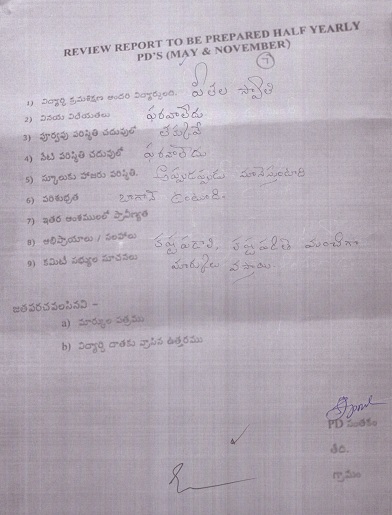 REVIEW REPORT TO BE PREPARED HALF YEARLY
PD'S (MAY & NOVEMBER)
7
1) విద్యార్థి క్రమశిక్షణ అందరి విద్యార్థులది. పీతల స్వాతి
2) వినయ విధేయతలు పరవాలేదు
3) పూర్వపు పరిస్థితి చదువులో తక్కువే
4) నేటి పరిస్థితి చదువులో పరవాలేదు
5) స్కూలుకు హాజరు పరిస్థితి. అప్పుడప్పుడు మానేస్తుంటాది
6) పరిశుభ్రత బాగానే ఉంటుంది.
7) ఇతర అంశములలో ప్రావీణ్యత
8) అభిప్రాయాలు / సలహాలు కష్టపడాలి. కష్టపడితే మంచిగా
9) కమిటీ సభ్యుల సూచనలు మార్కులు వస్తాయి.
జతపరచవలసినవి -
a) మార్కుల పత్రము
b) విద్యార్థి దాతకు వ్రాసిన ఉత్తరము
PD సంతకం
తేది.
గ్రామం